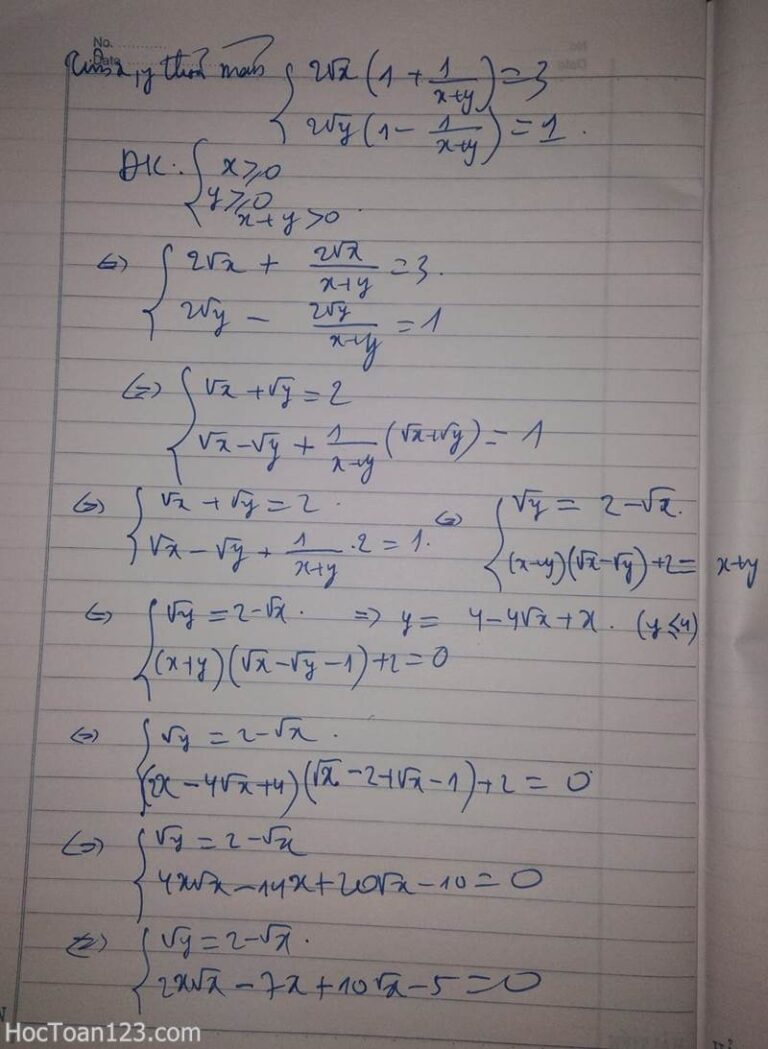 No.
Date
x, y thoả mãn { 2√x (1 + 1/(x+y)) = 3
2√y (1 - 1/(x+y)) = 1.
ĐK: { x ≥ 0
y ≥ 0
x + y > 0.
⇔ { 2√x + 2√x/(x+y) = 3.
2√y - 2√y/(x+y) = 1
⇔ { √x + √y = 2
√x - √y + 1/(x+y) (√x+√y) = 1
⇔ { √x + √y = 2. ⇔ { √y = 2 - √x.
√x - √y + 1/(x+y) .2 = 1. (x+y)(√x-√y) + 2 = x+y
⇔ { √y = 2-√x. ⇒ y = 4 - 4√x + x. (y ≤ 4)
(x+y)(√x - √y - 1) + 2 = 0
⇔ { √y = 2-√x.
(2x - 4√x + 4)(√x - 2 + √x - 1) + 2 = 0
⇔ { √y = 2-√x
4x√x - 14x + 20√x - 10 = 0
⇔ { √y = 2-√x.
2x√x - 7x + 10√x - 5 = 0
HocToan123.com